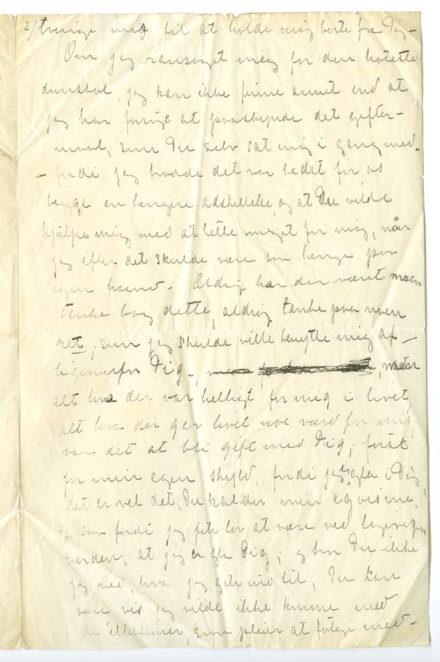 2/ tvinge mig til at holde mig borte fra Dig –
Om jeg ransaget mig for den høieste
domstol, jeg kan ikke finne annet end at
jeg har forsøgt at paaskynde det gifter-
maal, som Du selv sat mig i gang med –
– fordi jeg trodde det var bedst for os
begge en længere adskillelse, og at Du vilde
hjælpe mig med at lette meget for mig, naar
jeg efter det skulde være saa længe paa
egen haand. Aldrig har der været noen
tanke bag dette, aldrig tanke paa noen
ret, som jeg skulde ville benytte mig af –
ligeoverfor Dig –
alt hva der var helligt for mig i livet
alt hva der gør livet noe værd for mig,
var det at bli gift med Dig, først
for min egen skyld, fordi jeg er gla i Dig,
det er vel det, Du kalder min egoisme,
og saa fordi jeg fik lov at være ved ligeoverfor
verden, at jeg er gla Dig; og tror Du ikke
jeg ved, hva jeg gik ind til, Du kan
være vis jeg vilde ikke komme med
de illusioner, som pleier at følge med –